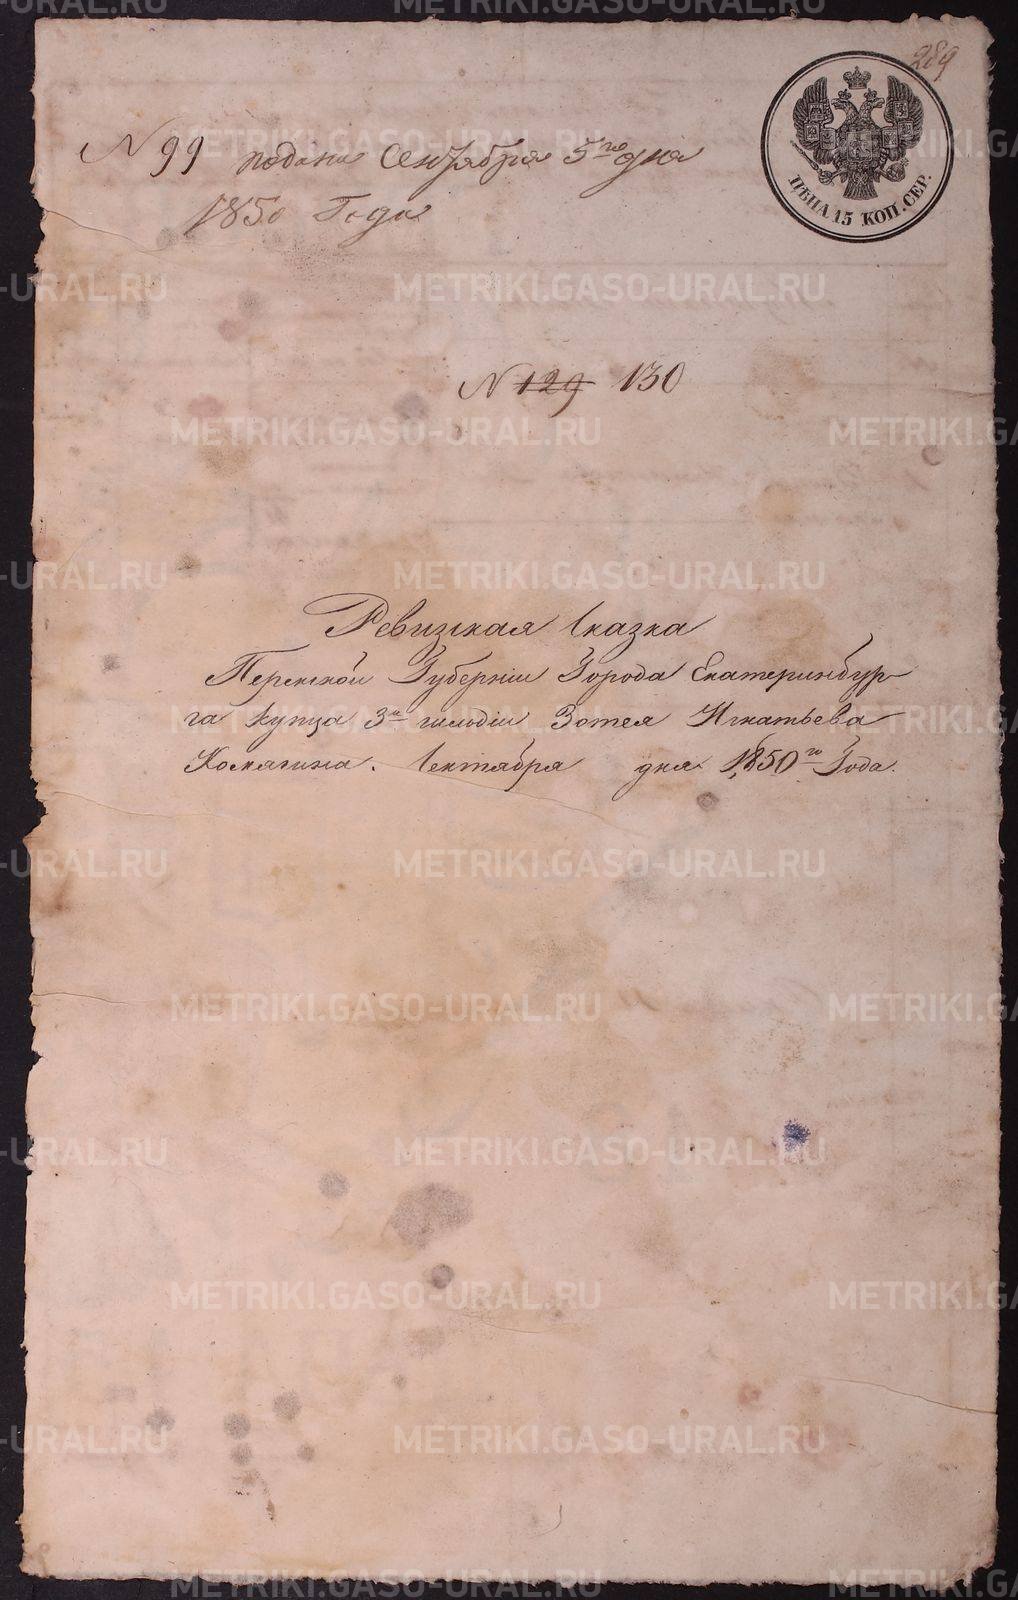 289
ЦѢНА 15 КОП. СЕР.
N 99 подана Сентября 5го дня
1850 Года
N 129 130
Ревизская Сказка
Пермской Губернiи Города Екатеринбур-
га купца 3й гильдiи Зотея Игнатьева
Комягина. Сентября дня 1850го Года.
METRIKI.GASO-URAL.RU